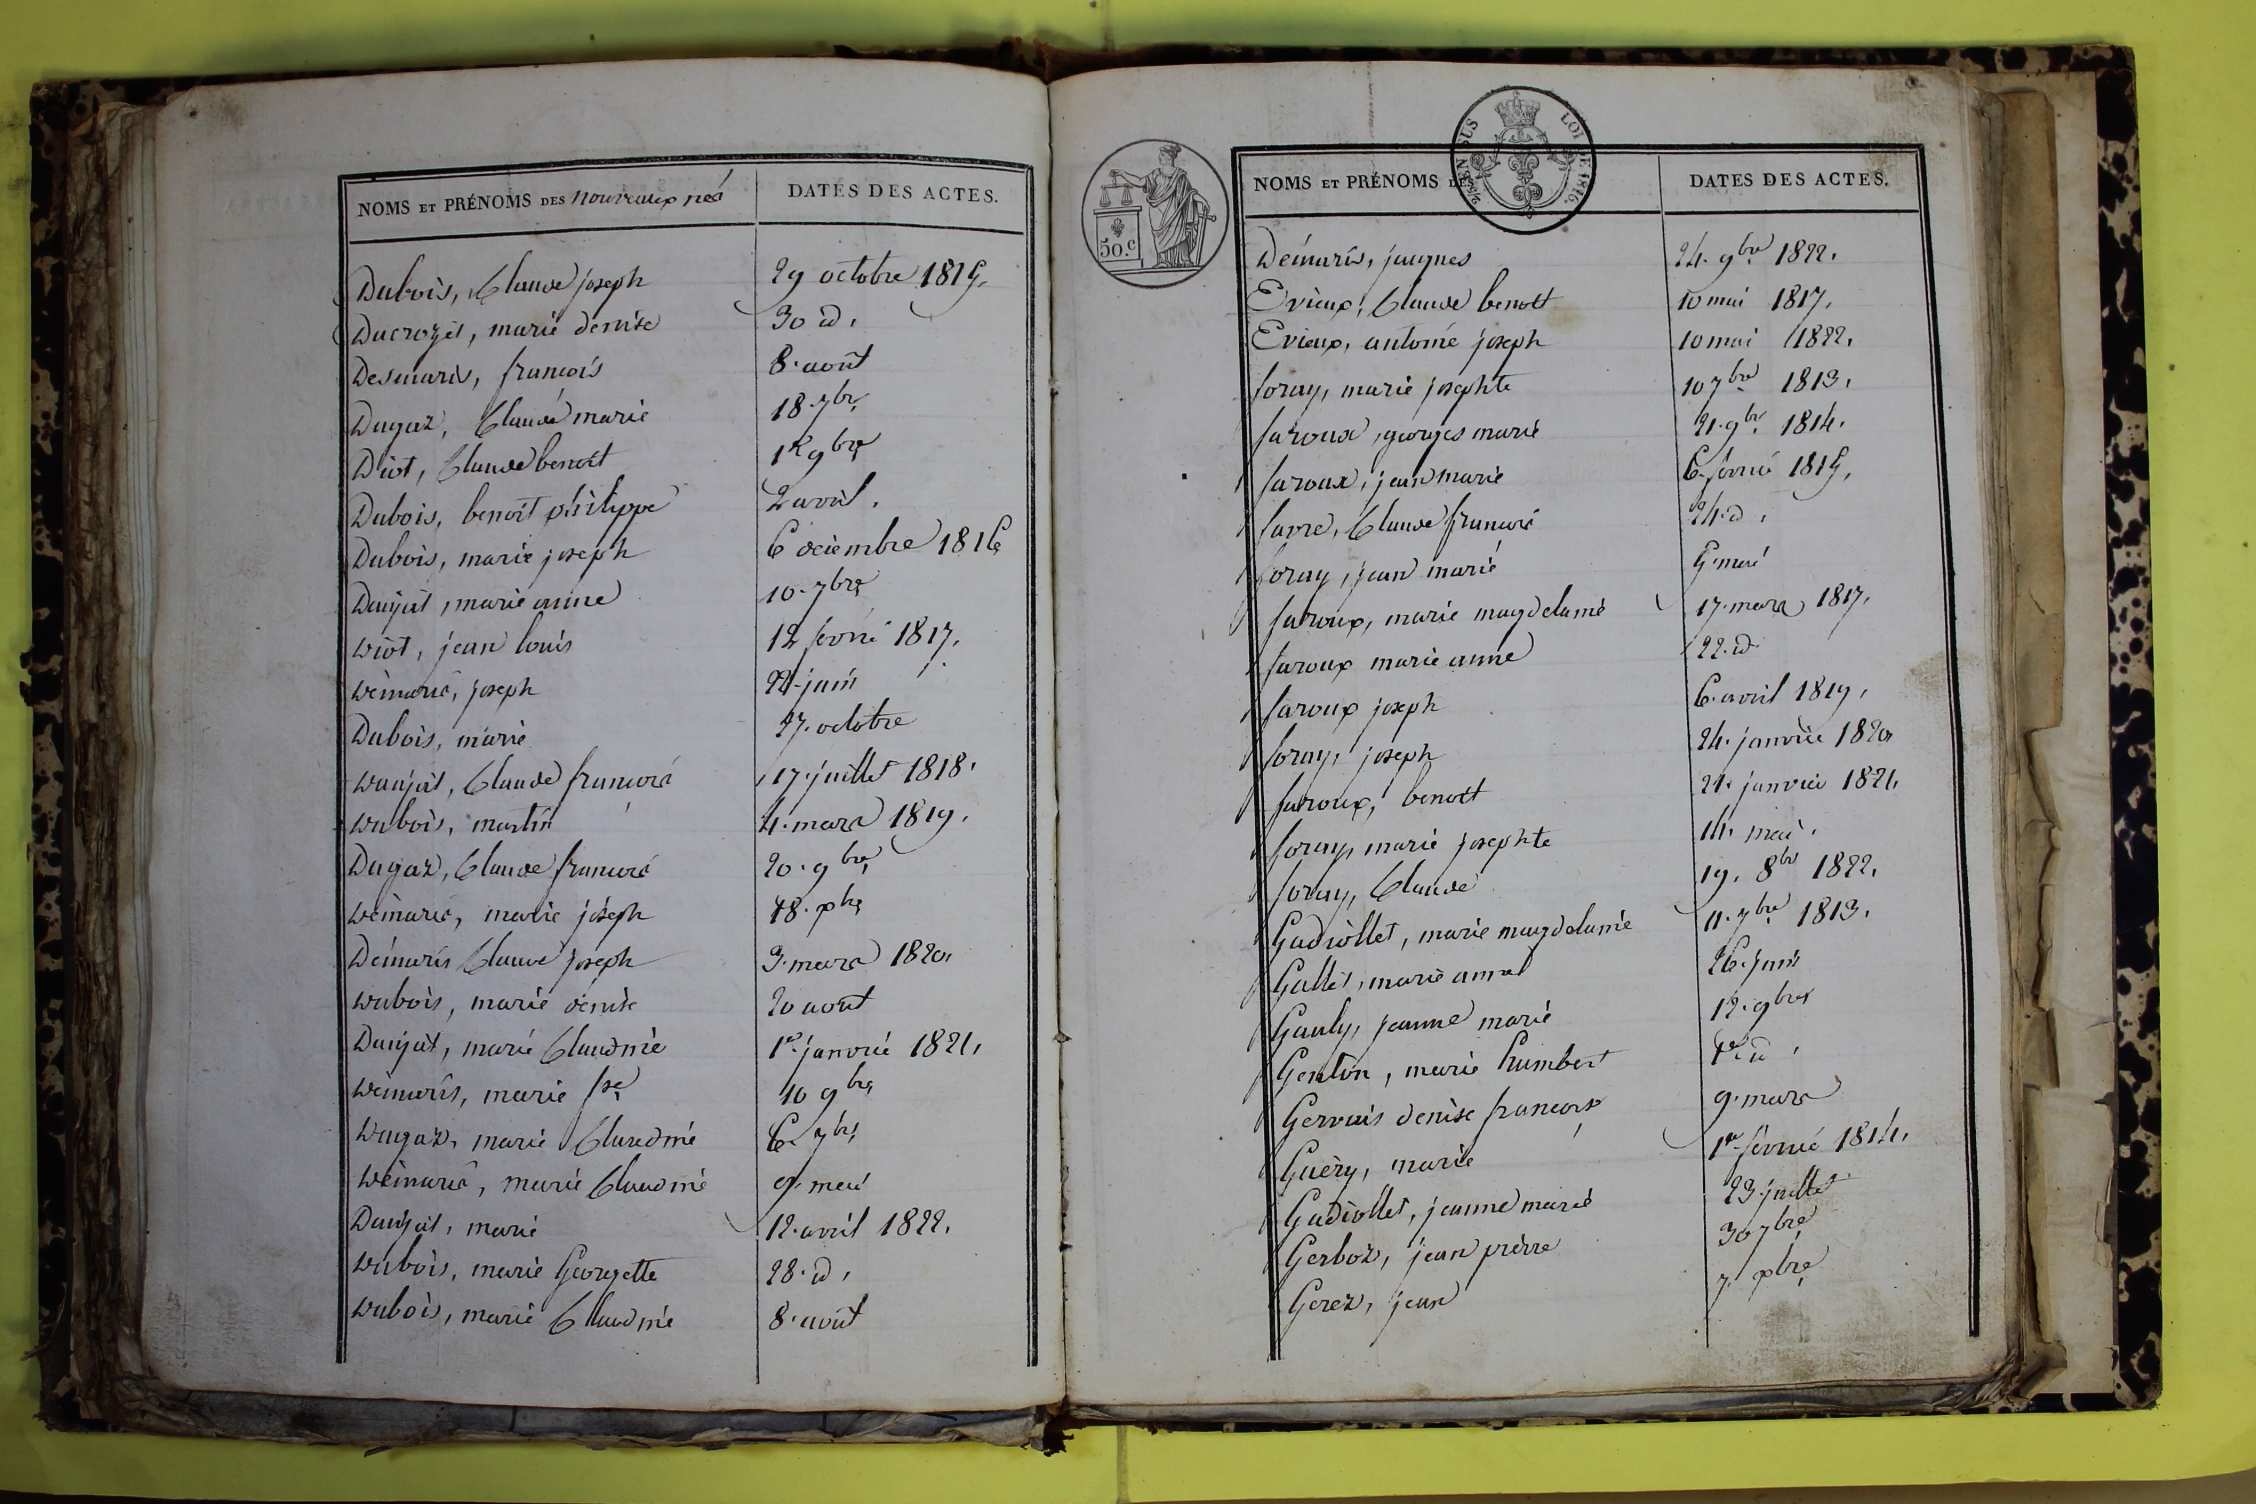 NOMS ET PRÉNOMS DES nouveaux nés DATES DES ACTES.
Dubois, Claude joseph 29 octobre 1815,
Ducrozet, marie denise 30 id,
Desmaris, francois 8. août
Dugaz, Claude marie 18. 7bre
Diot, Claude benoit 1er 9bre
Dubois, benoit philippe 2 avril,
Dubois, marie joseph 6 décembre 1816
Danjat, marie anne 10. 7bre
Diot, jean louis 12 février 1817,
Démaris, joseph 22. juin
Dubois, marie 27. octobre
Danjat, Claude francois 17. juillet 1818,
Dubois, martin 4. mars 1819,
Dugaz, Claude francois 20. 9bre
Démaris, marie joseph 18. xbre
Démaris Claude joseph 3. mars 1820,
Dubois, marie denise 20 août
Danjat, marie Claudine 1er janvier 1821,
Démaris, marie fse 10 9bre
Dugaz, marie Claudine 6. 7bre
Démaris, marie Claudine 9. mai
Danjat, marie 12. avril 1822,
Dubois, marie Georgette 28. id,
Dubois, marie Claudine 8. août
50.c
LOI DE 1816.
NOMS ET PRÉNOMS DES DATES DES ACTES.
Démaris, jacques 24. 9bre 1822,
Evieux, Claude benoit 10 mai 1817,
Evieux, antoine joseph 10 mai 1822,
foray, marie josephte 10 7bre 1813,
faroux, georges marie 21. 9bre 1814,
faroux, jean marie 6. février 1815,
favre, Claude francois 24. id,
foray, jean marie 5. mai
faroux, marie magdelaine 17. mars 1817,
faroux marie anne 22. id
faroux joseph 6. avril 1819,
foray, joseph 24. janvier 1820
faroux, benoit 21. janvier 1821,
foray, marie josephte 14. mai,
foray, Claude 19. 8bre 1822,
Gadiollet, marie magdelaine 11. 7bre 1813,
Gallet, marie anne 26. juin
Gauly, jeanne marie 12. 9bre
Genton, marie humbert 1er id,
Gervais denise francoise 9. mars
Guéry, marie 1er février 1814,
Gadiollet, jeanne marie 23. juillet
Gerboz, jean pierre 30 7bre
Gerez, jean 7. xbre